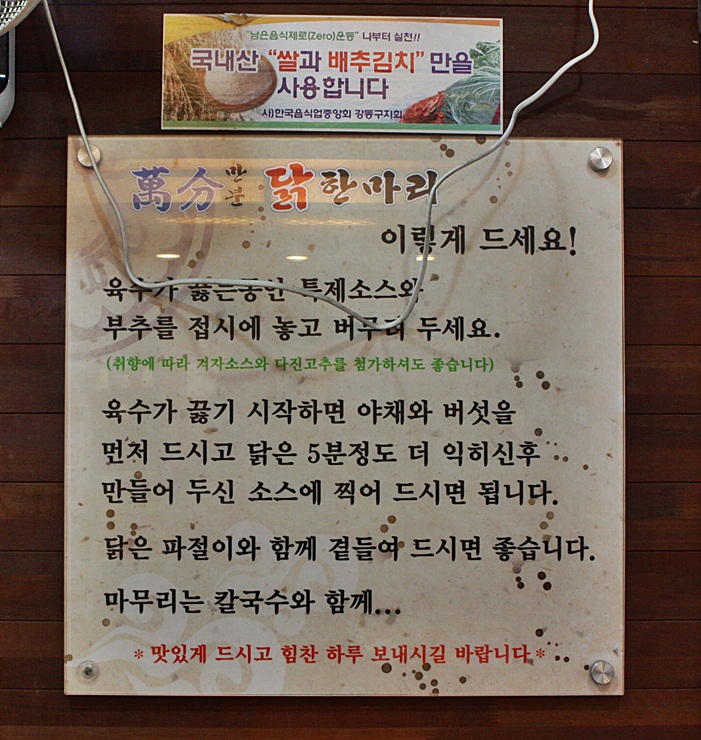 "남은음식제로(Zero)운동" 나부터 실천!!
국내산 "쌀과 배추김치" 만을
사용합니다
사)한국음식업중앙회 강동구지회
萬分 만분 닭한마리
이렇게 드세요!
육수가 끓는동안 특제소스와
부추를 접시에 놓고 버무려 두세요.
(취향에 따라 겨자소스와 다진고추를 첨가하셔도 좋습니다)
육수가 끓기 시작하면 야채와 버섯을
먼저 드시고 닭은 5분정도 더 익히신후
만들어 두신 소스에 찍어 드시면 됩니다.
닭은 파절이와 함께 곁들여 드시면 좋습니다.
마무리는 칼국수와 함께...
* 맛있게 드시고 힘찬 하루 보내시길 바랍니다 *